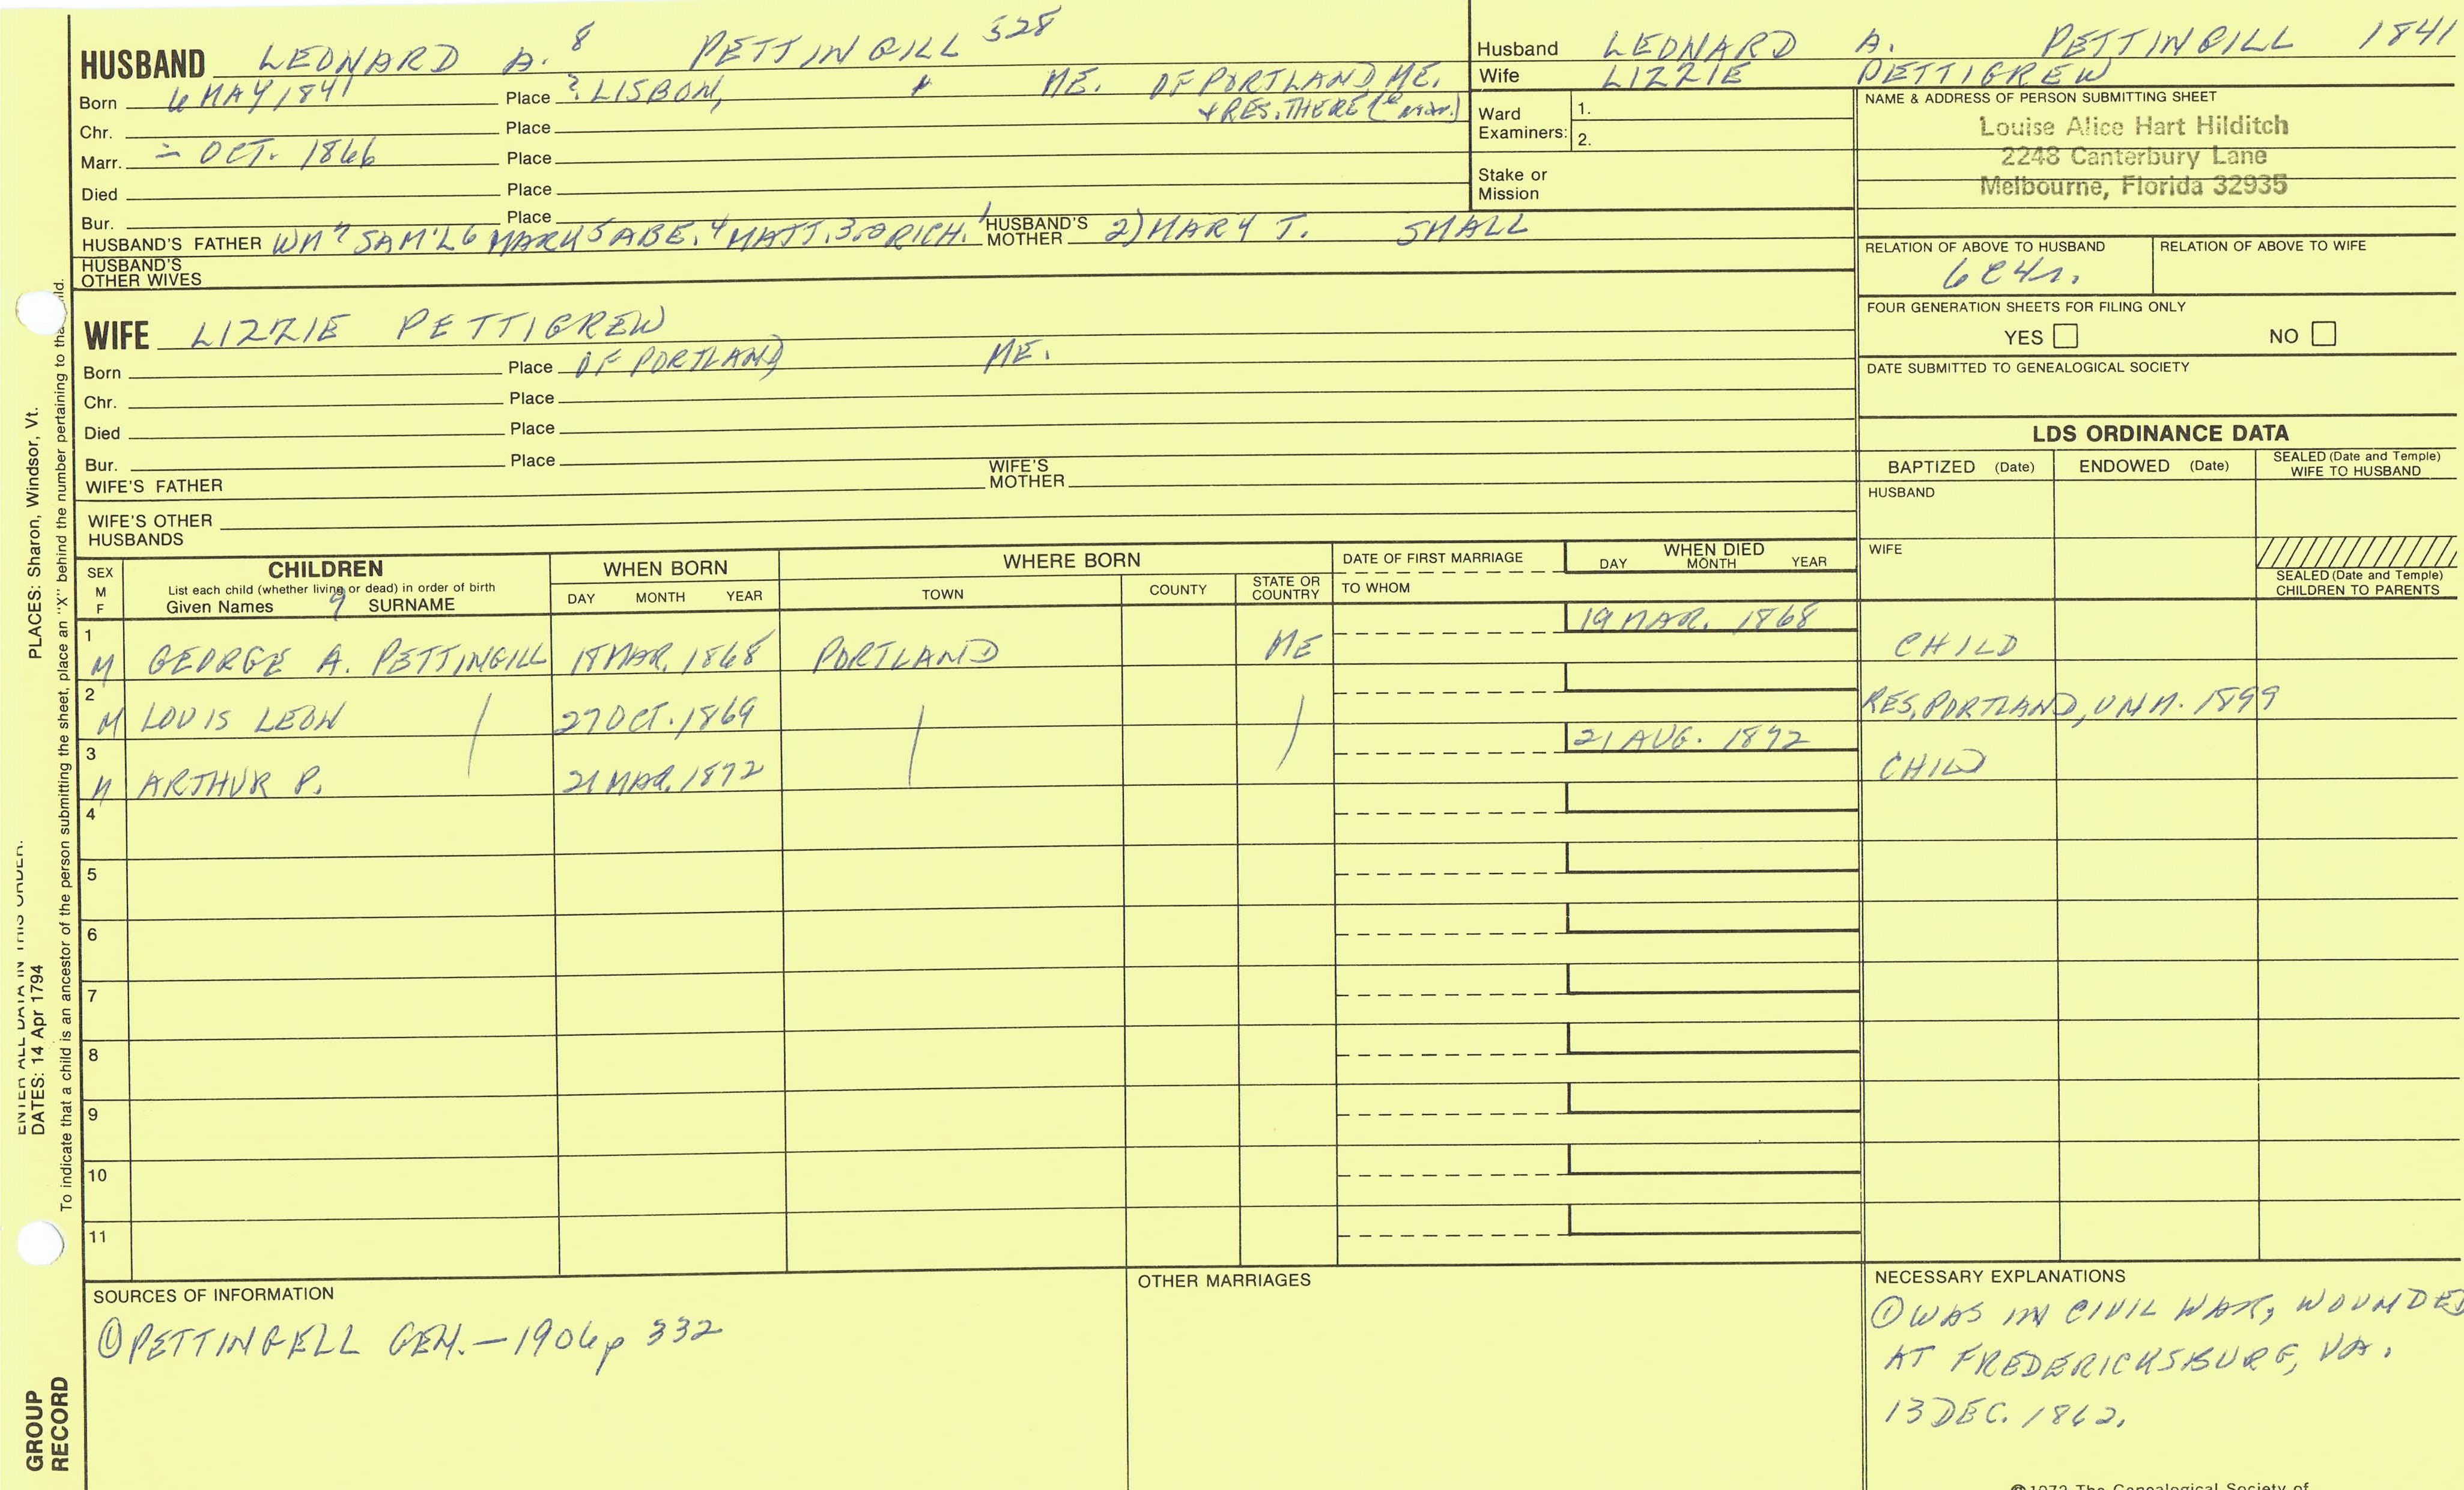 HUSBAND LEONARD A. 8 PETTINGILL 328
Born 6 MAY 1841 Place ? LISBON, ME. OF PORTLAND, ME.
& RES. THERE
Chr. Place
Marr. = OCT. 1866 Place
Died Place
Bur. Place
HUSBAND'S FATHER WM 7 SAM'L 6 MARK 5 ABE. 4 MATT. 3 RICH. 1 HUSBAND'S MOTHER 2) MARY T. SMALL
HUSBAND'S
OTHER WIVES
WIFE LIZZIE PETTIGREW
Born Place OF PORTLAND ME.
Chr. Place
Died Place
Bur. Place
WIFE'S FATHER WIFE'S MOTHER
WIFE'S OTHER
HUSBANDS
Husband LEONARD A. PETTINGILL 1841
Wife LIZZIE PETTIGREW
Ward
Examiners:
1.
2.
Stake or
Mission
NAME & ADDRESS OF PERSON SUBMITTING SHEET
Louise Alice Hart Hilditch
2248 Canterbury Lane
Melbourne, Florida 32935
RELATION OF ABOVE TO HUSBAND RELATION OF ABOVE TO WIFE
FOUR GENERATION SHEETS FOR FILING ONLY
YES NO
DATE SUBMITTED TO GENEALOGICAL SOCIETY
LDS ORDINANCE DATA
BAPTIZED (Date) ENDOWED (Date) SEALED (Date and Temple)
WIFE TO HUSBAND
HUSBAND
WIFE
SEALED (Date and Temple)
CHILDREN TO PARENTS
SEX
M
F
CHILDREN
List each child (whether living or dead) in order of birth
Given Names 9 SURNAME
WHEN BORN
DAY MONTH YEAR
WHERE BORN
TOWN COUNTY STATE OR COUNTRY
DATE OF FIRST MARRIAGE
TO WHOM
WHEN DIED
DAY MONTH YEAR
1 19 MAR. 1868
M GEORGE A. PETTINGILL 18 MAR. 1868 PORTLAND ME CHILD
2
M LOUIS LEON 27 OCT. 1869 RES. PORTLAND, UNM. 1899
3 21 AUG. 1872
M ARTHUR P. 21 MAR. 1872 CHILD
4
5
6
7
8
9
10
11
SOURCES OF INFORMATION
① PETTINGELL GEN. — 1906 p 332
OTHER MARRIAGES
NECESSARY EXPLANATIONS
① WAS IN CIVIL WAR, WOUNDED
AT FREDERICKSBURG, VA.
13 DEC. 1862.
©1972 The Genealogical Society of
ENTER ALL DATA IN THIS ORDER:
DATES: 14 Apr 1794 PLACES: Sharon, Windsor, Vt.
To indicate that a child is an ancestor of the person submitting the sheet, place an "X" behind the number pertaining to that child.
GROUP
RECORD